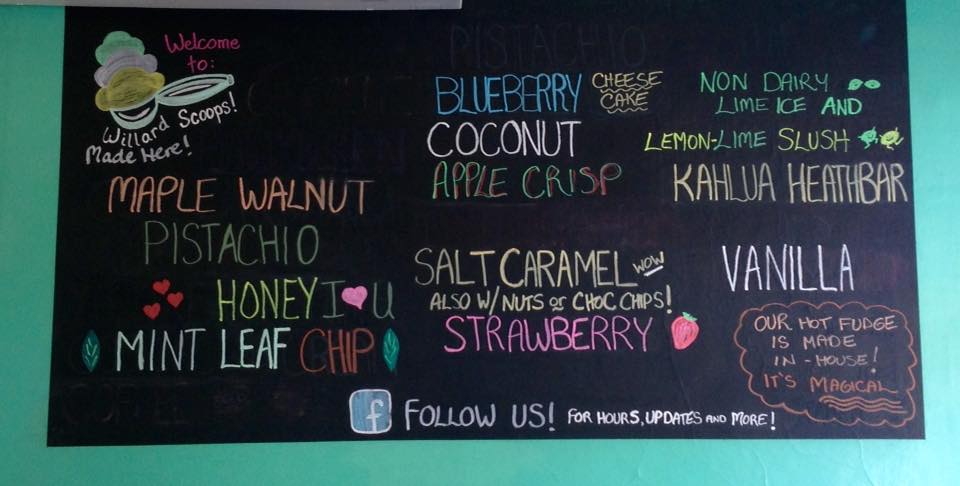 Welcome
to:
Willard Scoops!
Made Here!
MAPLE WALNUT
PISTACHIO
HONEY I U
MINT LEAF CHIP
PISTACHIO
BLUEBERRY CHEESE
CAKE
COCONUT
APPLE CRISP
SALT CARAMEL WOW
ALSO W/ NUTS or CHOC CHIPS!
STRAWBERRY
NON DAIRY
LIME ICE AND
LEMON-LIME SLUSH
KAHLUA HEATHBAR
VANILLA
OUR HOT FUDGE
IS MADE
IN-HOUSE!
IT'S MAGICAL
f FOLLOW US! FOR HOURS, UPDATES AND MORE!